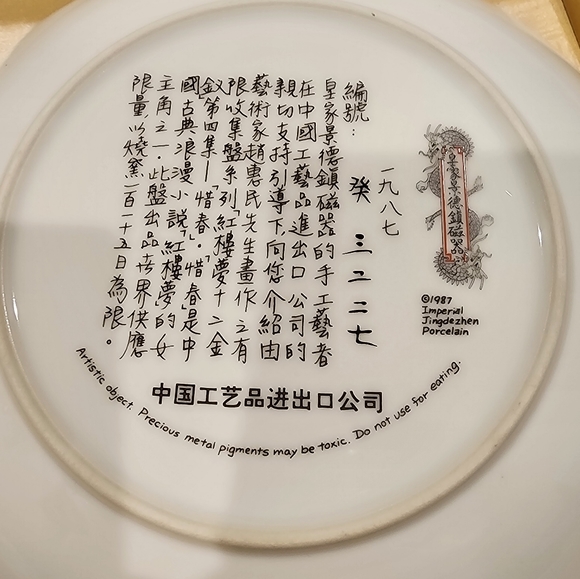 皇家景德鎮磁器
©1987
Imperial
Jingdezhen
Porcelain
一九八七
編號: 癸 三二二七
皇家景德鎮磁器的手工藝者
在中國工藝品進出口公司的
親切支持引導下向您介紹由
藝術家趙惠民先生畫作之有
限收集盤系列「紅樓夢十二金
釵」第四集—「惜春」。惜春是中
國古典浪漫小說「紅樓夢」的女
主角之一。此盤出品世界供應
限量,以燒窯一百一十五日為限。
中国工艺品进出口公司
Artistic object. Precious metal pigments may be toxic. Do not use for eating.